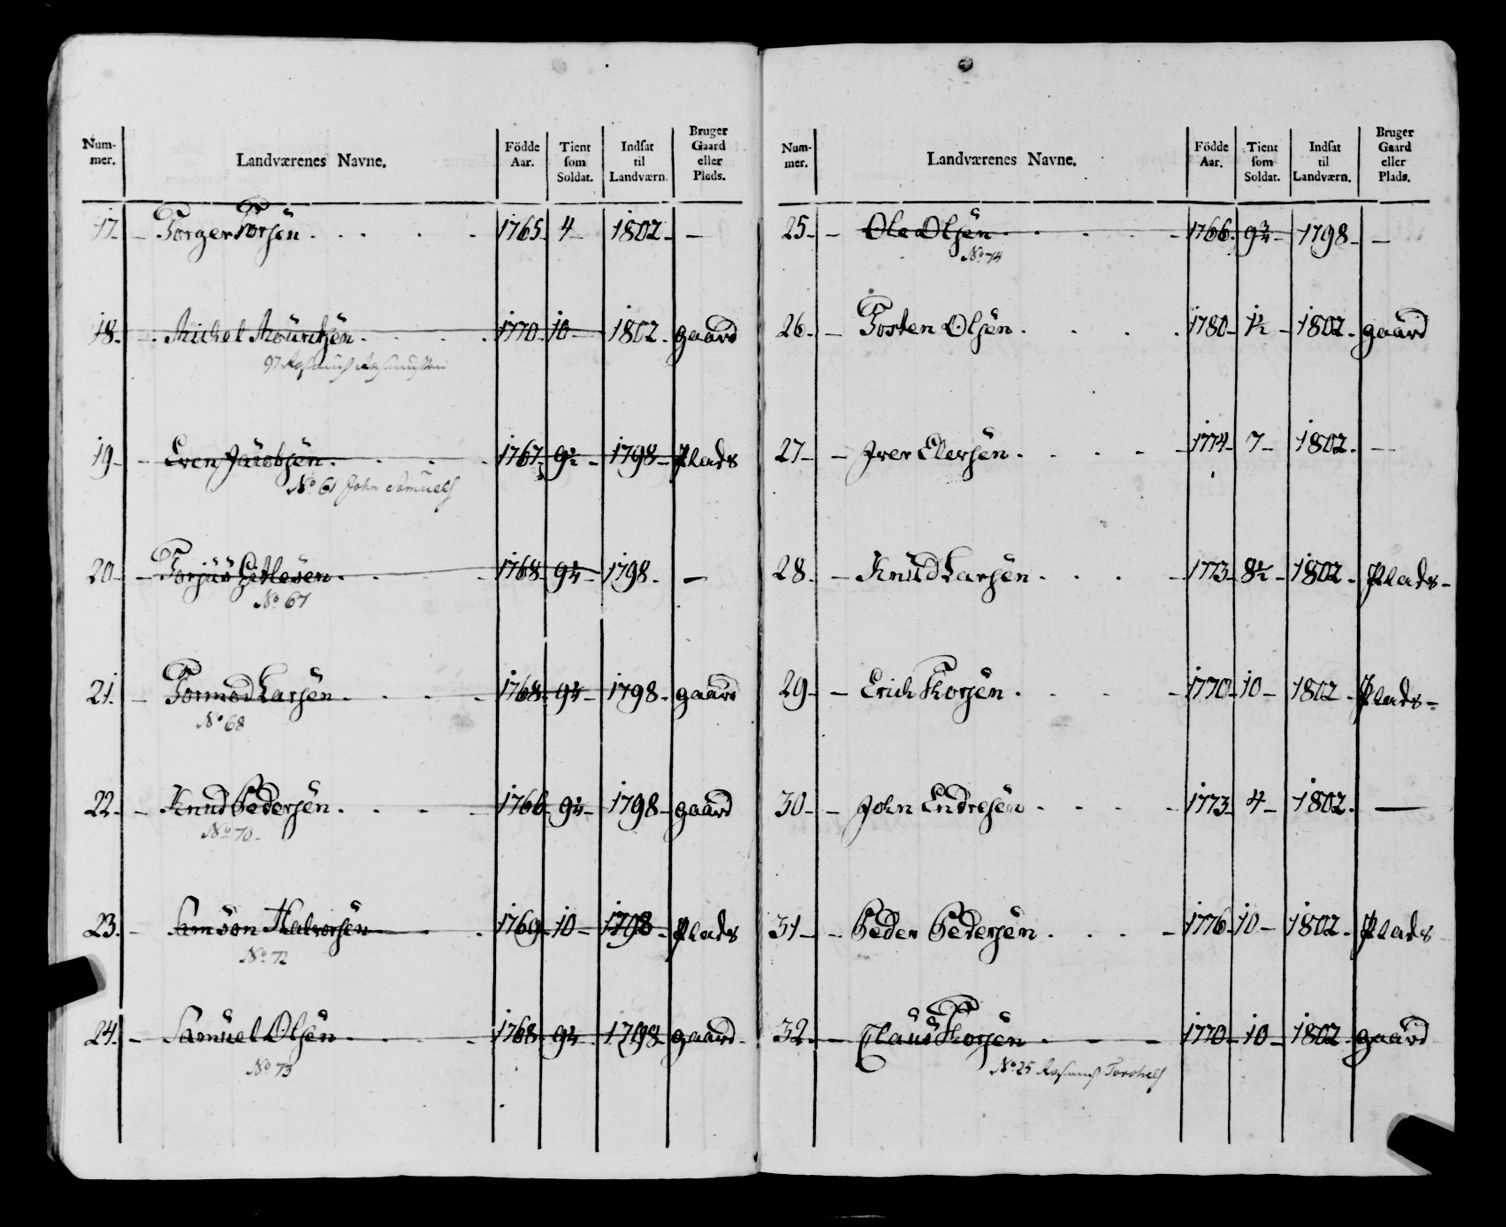 Num-
mer.
Landværenes Navne.
Födde
Aar.
Tient
som
Soldat.
Indsat
til
Landværn.
Bruger
Gaard
eller
Plads.
17. Torger Torsen 1765. 4 1802. —
18. Michel Mouritsen 1770. 10 1802. gaard
97
19. Even Jacobsen 1767. 9½ 1798 Plads
No. 61 John Samuels
20. Torjus 1768 9¼ 1798. —
No. 67
21. Tormod Larsen 1768 9¼ 1798. gaard
No. 68
22. Knud Pedersen 1766 9¼ 1798 gaard
No. 70.
23. Samson Halvorsen 1769 10 1798 Plads
No. 72
24. Samuel Olsen 1768 9¼ 1798 gaard
No. 73
Num-
mer.
Landværenes Navne.
Födde
Aar.
Tient
som
Soldat.
Indsat
til
Landværn.
Bruger
Gaard
eller
Plads.
25. Ole Olsen 1766. 9¾ 1798 —
No. 74
26. Torsten Olsen 1780 1½ 1802. gaard
27. Iver Elersen 1774 7 1802. —
28. Knud Larsen 1773 8½ 1802. Plads
29. Erich Thorsen 1770 10 1802. Plads
30. John Endresen 1773 4 1802. —
31. Peder Pedersen 1776 10 1802. Plads
32. Claus Thorsen 1770 10 1802. gaard
No. 25